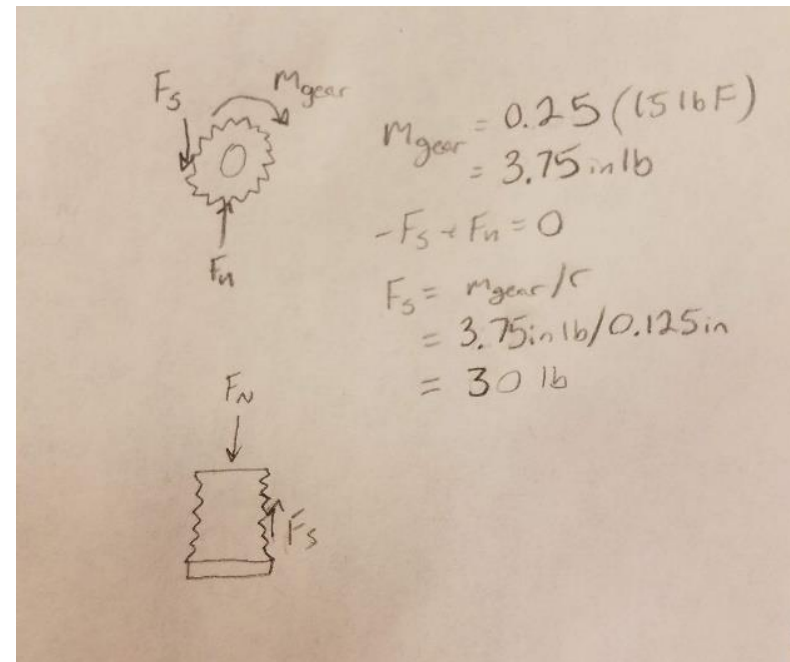 Fs
Mgear
Mgear = 0.25 (15 lbF)
= 3.75 in lb
-Fs + Fn = 0
Fn
Fs = Mgear/r
= 3.75 in lb/0.125 in
= 30 lb
FN
Fs